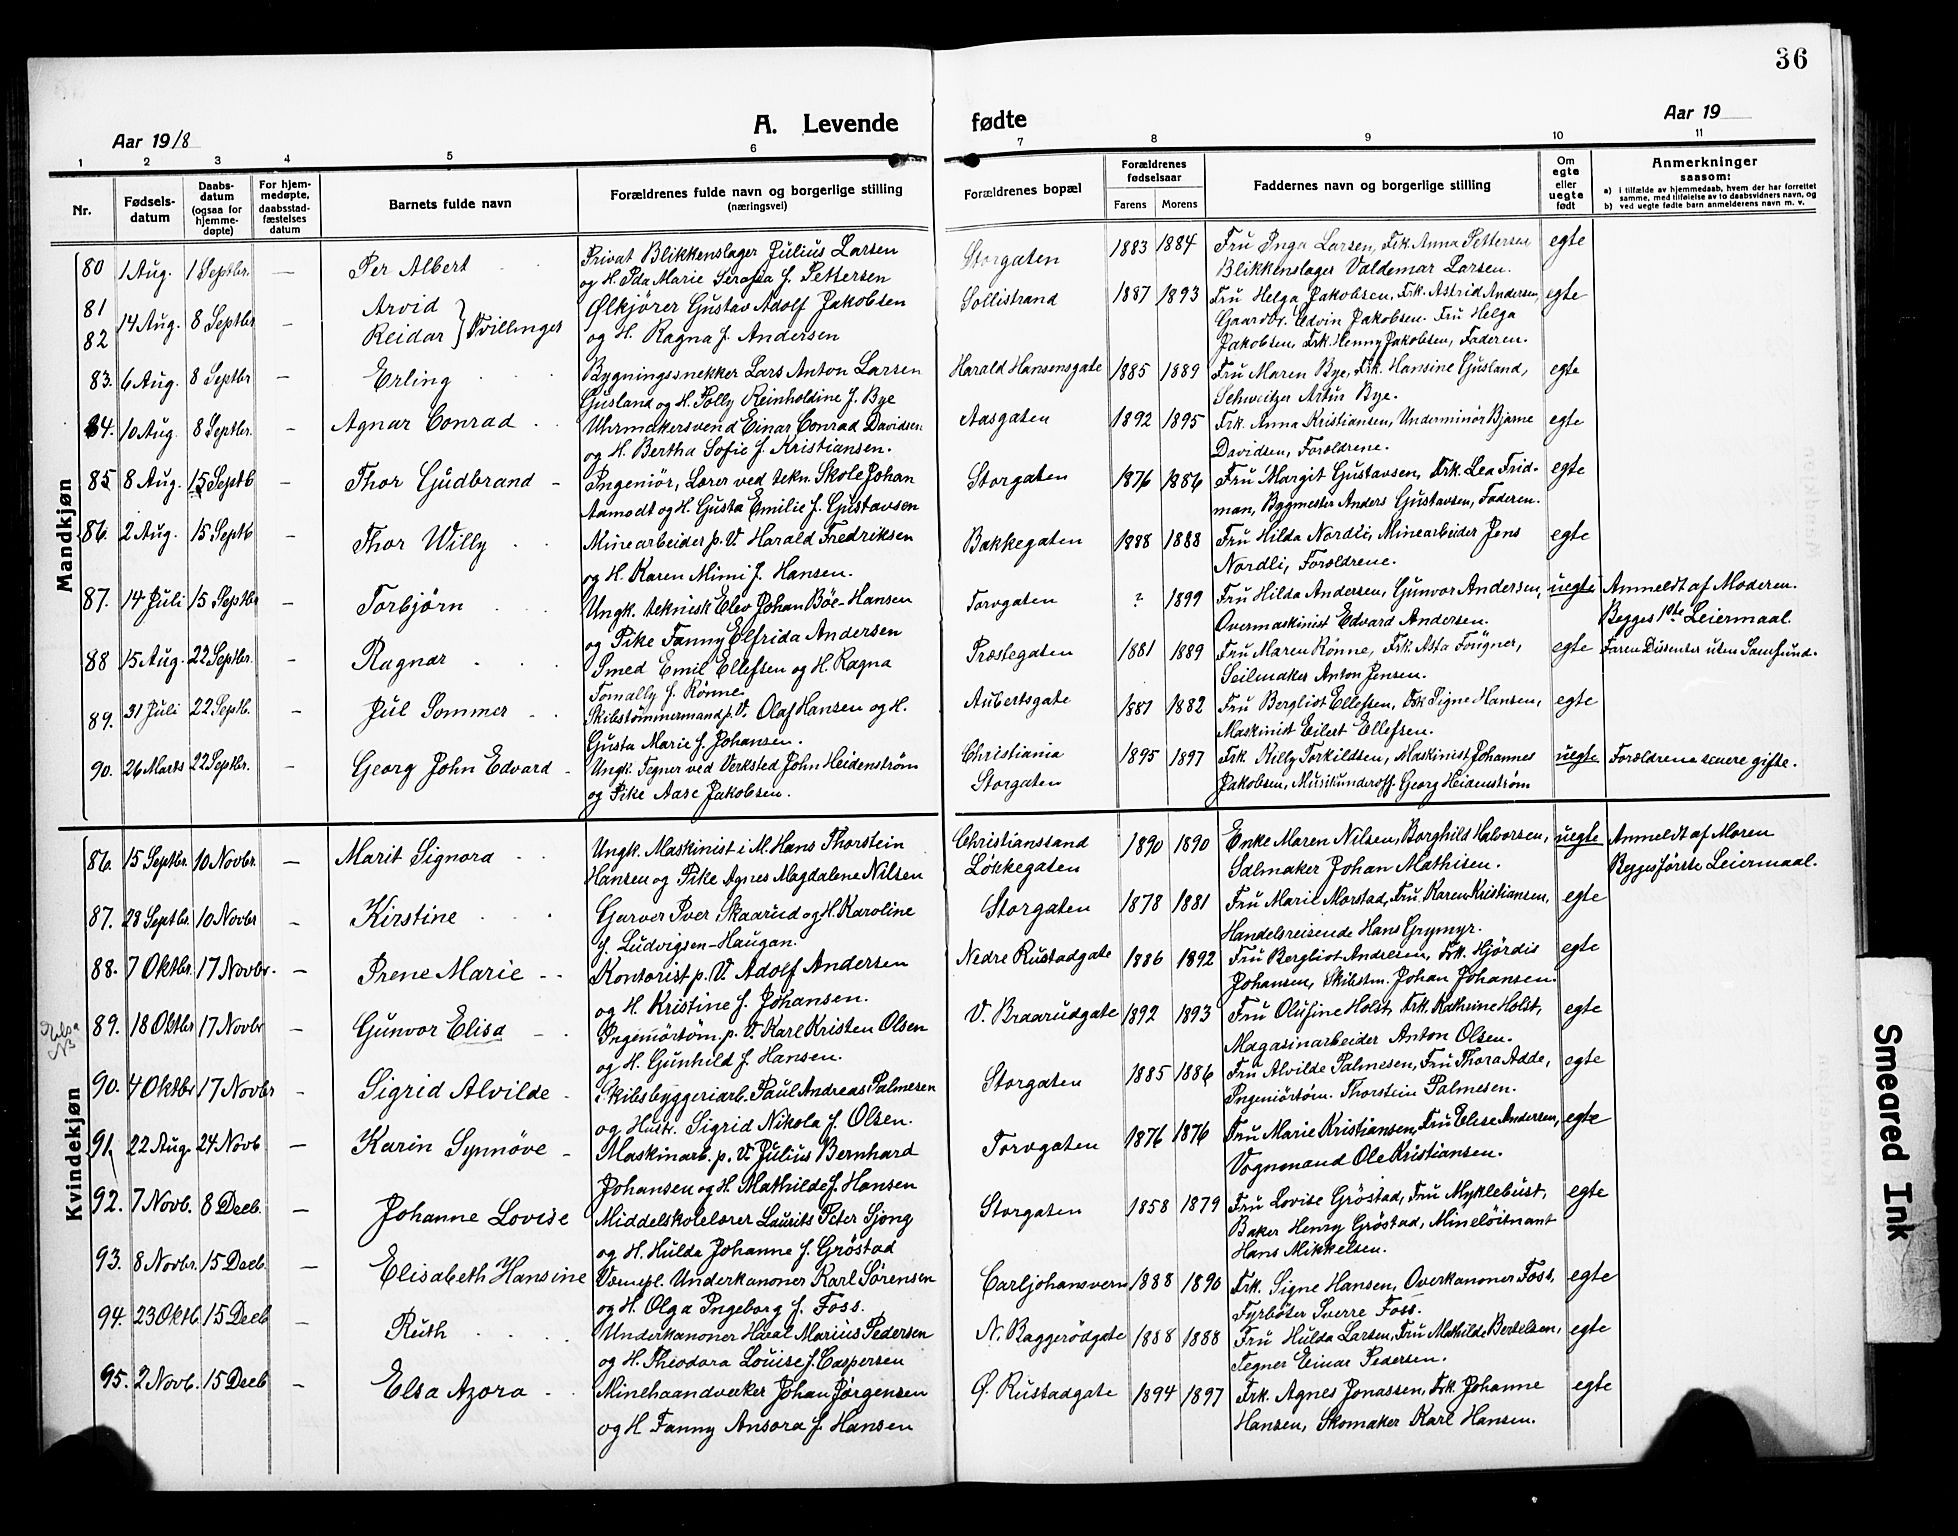 36
Aar 1918
A. Levende
fødte
Aar 19
1 2 3 4 5 6 7 8 9 10 11
Nr.
Fødsels-
datum
Daabs-
datum
(ogsaa for
hjemme-
døpte)
For hjem-
medøpte,
daabsstad-
fæstelses
datum
Barnets fulde navn
Forældrenes fulde navn og borgerlige stilling
(næringsvei)
Forældrenes bopæl
Forældrenes
fødselsaar
Farens Morens
Faddernes navn og borgerlige stilling
Om
egte
eller
uegte
født
Anmerkninger
saasom:
a) i tilfælde av hjemmedaab, hvem der har forrettet
samme, med tilføielse av to daabsvidners navn, og
b) ved uegte fødte barn anmelderens navn m. v.
Mandkjøn
80 1 Aug. 1 Septbr. — Per Albert
Privat Blikkenslager Julius Larsen
og H. Ida Marie Serafia f. Pettersen
Storgaten 1883 1884
Fru Inga Larsen, Frk. Anna Pettersen
Blikkenslager Valdemar Larsen.
egte
81
82
14 Aug. 8 Septbr —
Arvid
Reidar } Tvillinger
Ølkjører Gustav Adolf Jakobsen
og H. Ragna f. Andersen
Sollistrand 1887 1893
Fru Helga Jakobsen, Frk. Astrid Andersen,
Gaardbr. Edvin Jakobsen. Fru Helga
Jakobsen, Frk. Henny Jakobsen, Faderen.
egte
83. 6 Aug. 8 Septbr — Erling
Bygningssnekker Lars Anton Larsen
Gusland og H. Polly Reinholdine f. Bye
Harald Hansensgate 1885 1889
Fru Maren Bye, Frk. Hansine Gusland,
Schweitzer Artur Bye.
egte
84. 10 Aug. 8 Septbr. — Agnar Conrad
Uhrmakersvend Einar Conrad Davidsen
og H. Bertha Sofie f. Kristiansen.
Aasgaten 1892 1895
Frk. Anna Kristiansen, Underminør Bjarne
Davidsen, Forældrene.
egte
85 8 Aug. 15 Septb — Thor Gudbrand
Ingeniør, Lærer ved tekn. Skole Johan
Aamodt og H. Gusta Emilie f. Gustavsen
Storgaten 1876 1886
Fru Margit Gustavsen, Frk. Lea Frid-
man, Bygmester Anders Gustavsen, Faderen.
egte
86. 2 Aug. 15 Septb — Thor Willy
Minearbeider p. V. Harald Fredriksen
og H. Karen Mimi f. Hansen.
Bakkegaten 1888 1888
Fru Hilda Nordli, Minearbeider Jens
Nordli, Forældrene.
egte
87. 14 Juli 15 Septbr — Torbjørn
Ungk. teknisk Elev Johan Bøe-Hansen
og Pike Fanny Elfrida Andersen
Torvgaten ? 1899
Fru Hilda Andersen, Gunvor Andersen,
Overmaskinist Edvard Andersen.
uegte
Anmeldt af Moderen.
Begges 1ste Leiermaal.
88 15 Aug. 22 Septbr. — Ragnar
Smed Emil Ellefsen og H. Ragna
Tomally f. Rønne.
Præstegaten 1881 1889
Fru Maren Rønne, Frk. Asta Fougner,
Seilmaker Anton Jensen.
egte
Faren Dissenter uten Samfund.
89. 31 Juli 22 Septb. — Jul Sommer
Skibstømmermand p. V. Olaf Hansen og H.
Gusta Marie f. Johansen.
Aubertsgate 1881 1882
Fru Bergliot Ellefsen, Frk Signe Hansen,
Maskinist Eilert Ellefsen.
egte
90. 26 Marts 22 Septbr. — Georg John Edvard
Ungk. Tegner ved Verksted John Heidenstrøm
og Pike Aase Jakobsen.
Christiania
Storgaten
1895 1897
Frk Killy Torkildsen, Maskinist Johannes
Jakobsen, Musikunderoff. Georg Heidenstrøm
uegte
Forældrene senere gifte.
Kvindekjøn
86. 15 Septbr. 10 Novbr. — Marit Signora
Ungk. Maskinist i M. Hans Thorstein
Hansen og Pike Agnes Magdalene Nilsen
Christianssand
Løkkegaten
1890 1890
Enke Maren Nilsen, Borghild Halvorsen,
Salmaker Johan Mathisen.
uegte
Anmeldt af Moren
Begges første Leiermaal.
87. 28 Septbr. 10 Novbr — Kirstine
Garver Iver Skaarud og H. Karoline
f. Ludvigsen-Haugan.
Storgaten 1878 1881
Fru Marie Morstad, Fru Karen Kristiansen,
Handelsreisende Hans Grymyr.
egte
88. 7 Oktbr. 17 Novbr. — Irene Marie
Kontorist p. V. Adolf Andersen
og H. Kristine f. Johansen.
Nedre Rustadgate 1886 1892
Fru Bergliot Andresen, Frk. Hjørdis
Johansen, Skibstm. Johan Johansen.
egte
Elsa
NB
89. 18 Oktbr 17 Novbr — Gunvor Elisa
Ingeniørtøm. p. V. Karl Kristen Olsen
og H. Gunhild f. Hansen.
V. Braarudgate 1892 1893
Fru Olufine Holst, Frk. Kathrine Holst,
Magasinarbeider Anton Olsen.
egte
90. 4 Oktbr 17 Novbr — Sigrid Alvilde
Skibsbyggeriarb. Paul Andreas Palmesen
og Hustr. Sigrid Nikola f. Olsen.
Storgaten 1885 1886
Fru Alvilde Palmesen, Fru Thora Adde,
Ingeniörtöm. Thorstein Palmesen.
egte
91. 22 Aug. 24 Novb — Karin Synnøve
Maskinarb. p. V. Julius Bernhard
Johansen og H. Mathilde f. Hansen
Torvgaten 1876 1876
Fru Marie Kristiansen, Fru Elise Andersen,
Vognmand Ole Kristiansen.
egte
92. 7 Novb. 8 Decb. — Johanne Lovise
Middelskolelærer Laurits Peter Sjong
og H. Hulda Johanne f. Gröstad
Storgaten 1858 1879
Fru Lovise Gröstad, Fru Myklebust,
Baker Henry Gröstad, Mineløitnant
Hans Mikkelsen.
egte
93. 8 Novbr. 15 Decb. — Elisabeth Hansine
Værnepl. Underkanoner Karl Sørensen
og H. Olga Ingeborg f. Foss.
Carljohansvern 1888 1890
Frk. Signe Hansen, Overkanoner Foss,
Fyrböter Sverre Foss.
egte
94. 23 Oktb. 15 Decb — Ruth
Underkanoner Haral Marius Pedersen
og H. Theodora Louise f. Caspersen
N. Baggerødgate 1888 1888
Fru Hulda Larsen, Fru Mathilde Bertelsen,
Tegner Einar Pedersen.
egte
95. 2 Novb. 15 Decb — Elsa Azora
Minehaandverker Johan Jørgensen
og H Fanny Ansora f. Hansen
Ø. Rustadgate 1894 1897
Frk. Agnes Jonassen, Frk. Johanne
Hansen, Skomaker Karl Hansen.
egte
Smeared Ink